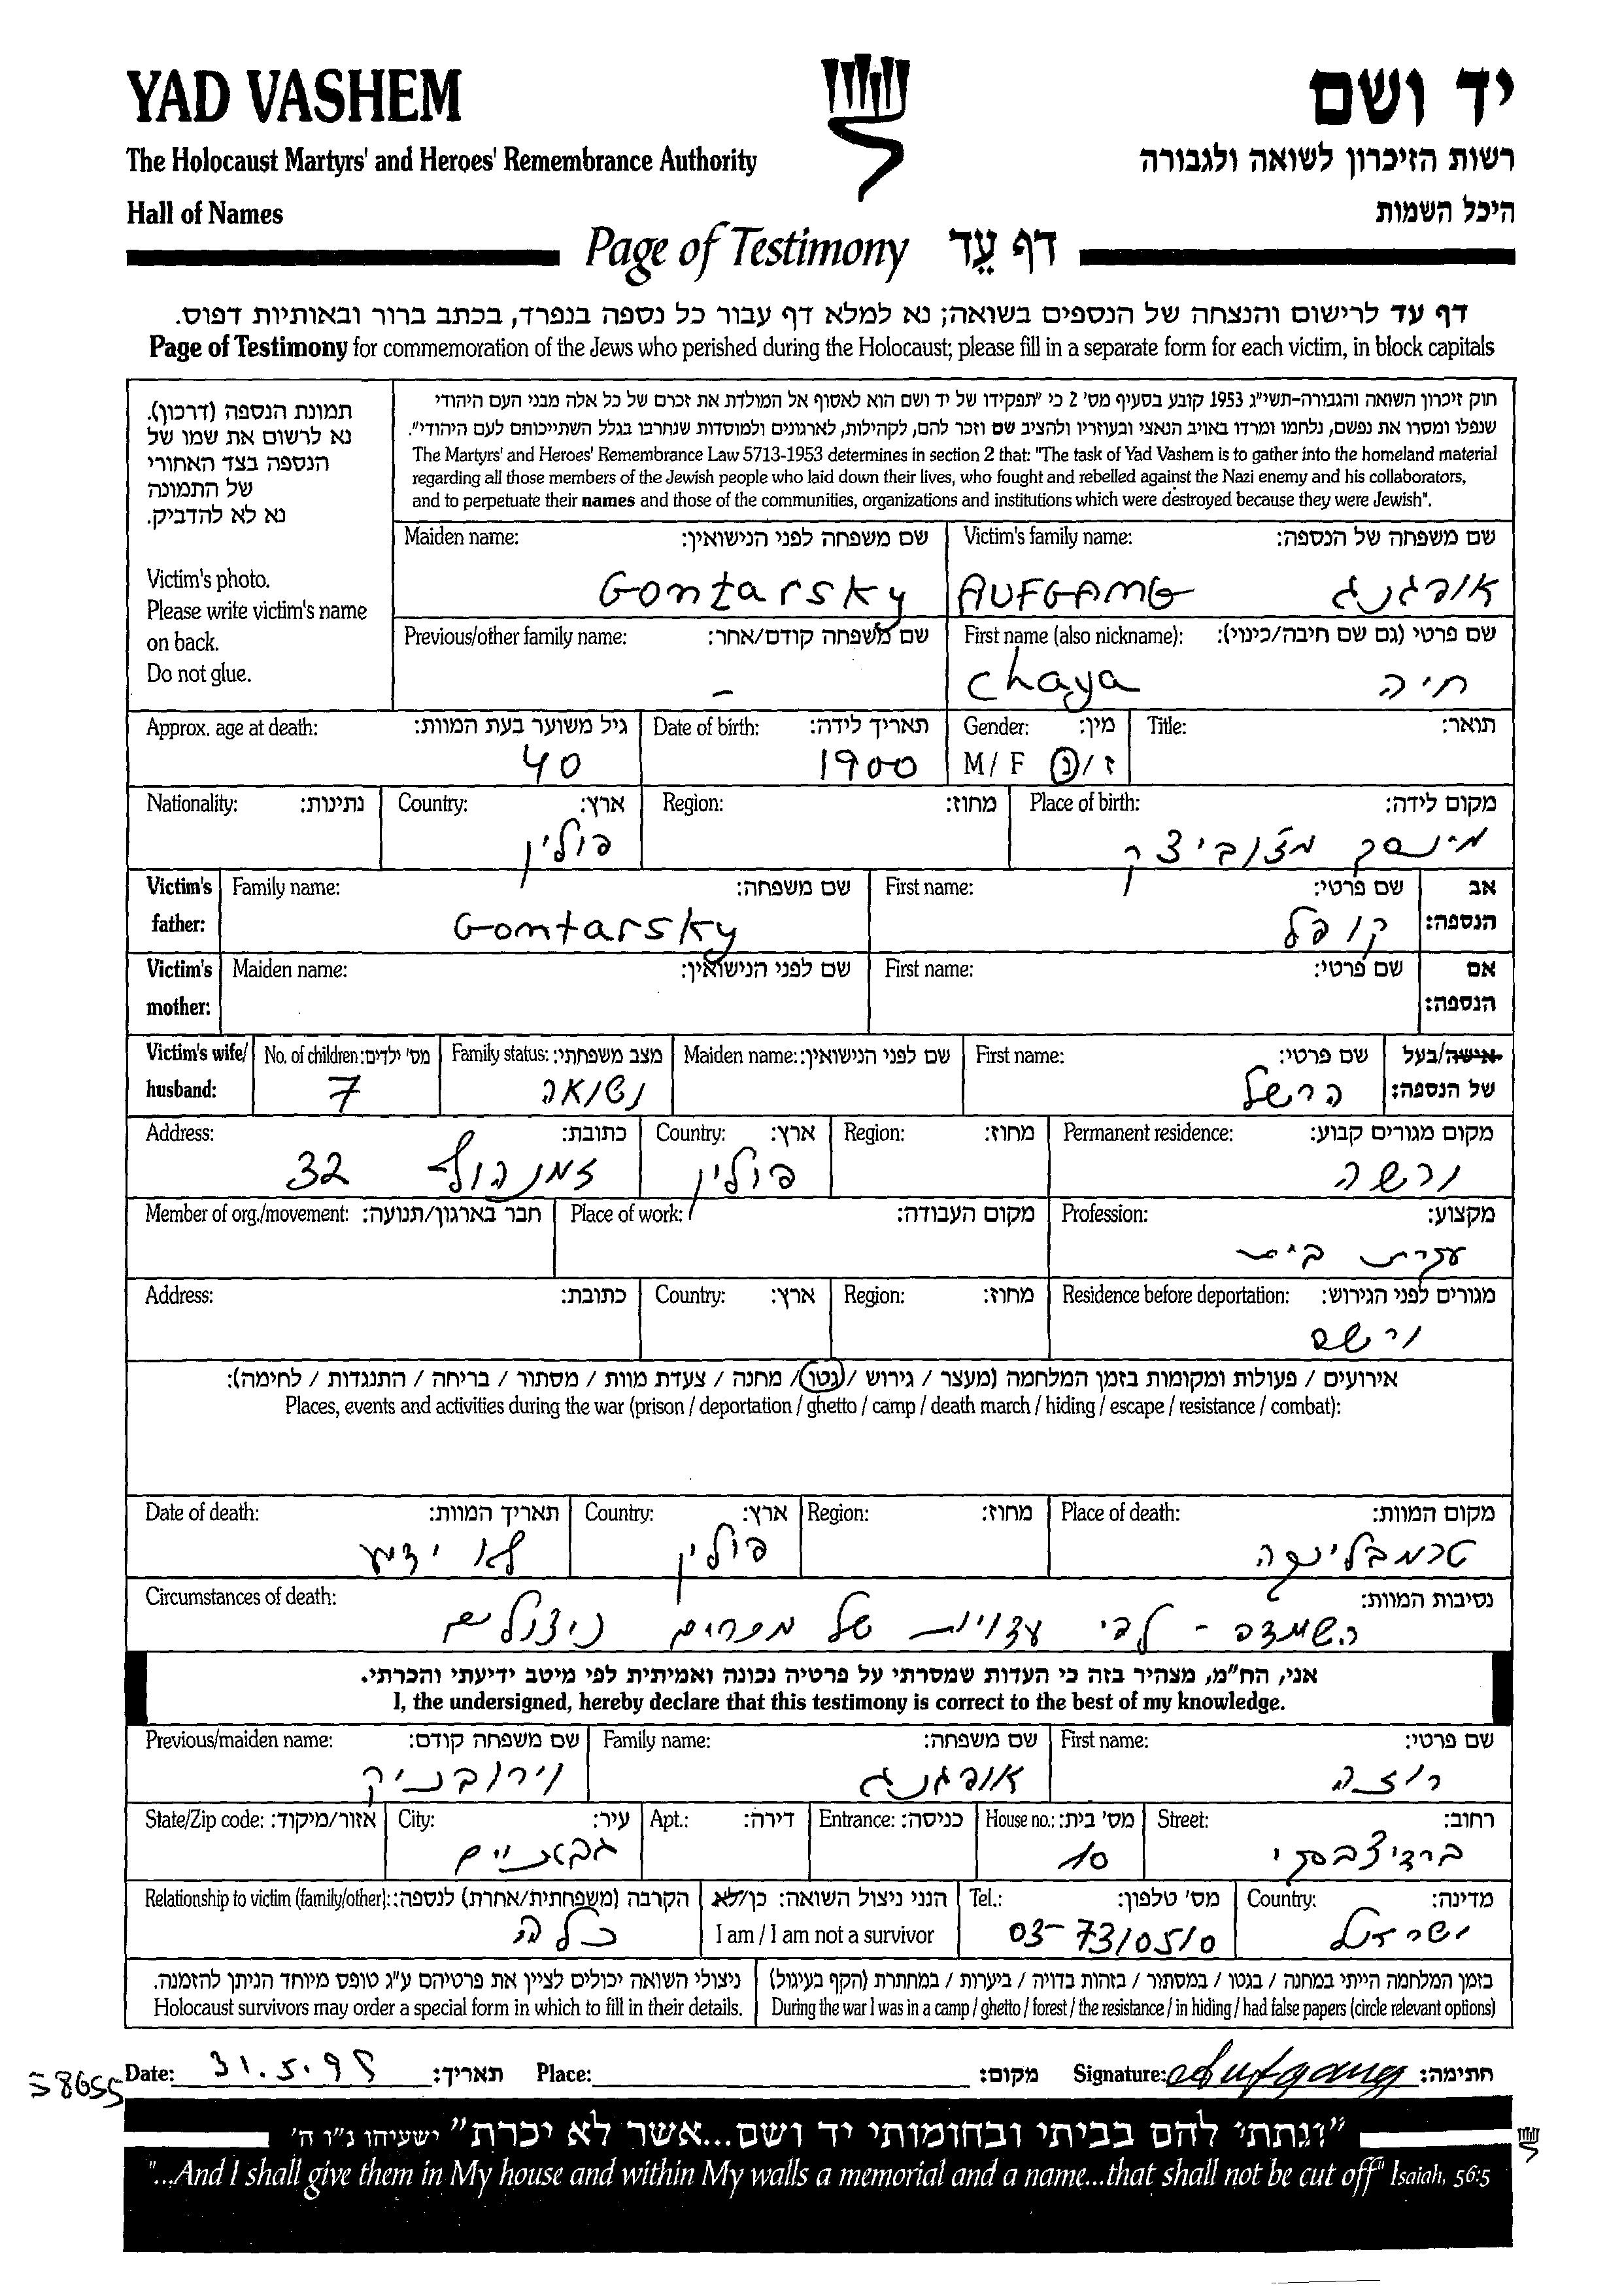 YAD VASHEM
יד ושם
The Holocaust Martyrs' and Heroes' Remembrance Authority
רשות הזיכרון לשואה ולגבורה
Hall of Names
היכל השמות
Page of Testimony דף עֵד
דף עד לרישום והנצחה של הנספים בשואה; נא למלא דף עבור כל נספה בנפרד, בכתב ברור ובאותיות דפוס.
Page of Testimony for commemoration of the Jews who perished during the Holocaust; please fill in a separate form for each victim, in block capitals
תמונת הנספה (דרכון).
נא לרשום את שמו של
הנספה בצד האחורי
של התמונה
נא לא להדביק.
Victim's photo.
Please write victim's name
on back.
Do not glue.
חוק זיכרון השואה והגבורה-תשי"ג 1953 קובע בסעיף מס' 2 כי "תפקידו של יד ושם הוא לאסוף אל המולדת את זכרם של כל אלה מבני העם היהודי
שנפלו ומסרו את נפשם, נלחמו ומרדו באויב הנאצי ובעוזריו ולהציב שם וזכר להם, לקהילות, לארגונים ולמוסדות שנחרבו בגלל השתייכותם לעם היהודי".
The Martyrs' and Heroes' Remembrance Law 5713-1953 determines in section 2 that: "The task of Yad Vashem is to gather into the homeland material
regarding all those members of the Jewish people who laid down their lives, who fought and rebelled against the Nazi enemy and his collaborators,
and to perpetuate their names and those of the communities, organizations and institutions which were destroyed because they were Jewish".
Maiden name: שם משפחה לפני הנישואין: Victim's family name: שם משפחה של הנספה:
Gontarsky AUFGANG אופגנג
Previous/other family name: שם משפחה קודם/אחר: First name (also nickname): שם פרטי (גם שם חיבה/כינוי):
– Chaya חיה
Approx. age at death: גיל משוער בעת המוות: Date of birth: תאריך לידה: Gender: מין: Title: תואר:
40 1900 M / F ז/נ
Nationality: נתינות: Country: ארץ: Region: מחוז: Place of birth: מקום לידה:
פולין מינסק מזוביצק
Victim's father: Family name: שם משפחה: First name: שם פרטי: אב הנספה:
Gontarsky קופל
Victim's mother: Maiden name: שם לפני הנישואין: First name: שם פרטי: אם הנספה:
Victim's wife/ husband: No. of children: מס' ילדים: Family status: מצב משפחתי: Maiden name: שם לפני הנישואין: First name: שם פרטי: אישה/בעל של הנספה:
7 נשואה הרשל
Address: כתובת: Country: ארץ: Region: מחוז: Permanent residence: מקום מגורים קבוע:
32 פולין ורשה
Member of org./movement: חבר בארגון/תנועה: Place of work: מקום העבודה: Profession: מקצוע:
עקרת בית
Address: כתובת: Country: ארץ: Region: מחוז: Residence before deportation: מגורים לפני הגירוש:
ורשה
אירועים / פעולות ומקומות בזמן המלחמה (מעצר / גירוש / גטו / מחנה / צעדת מוות / מסתור / בריחה / התנגדות / לחימה):
Places, events and activities during the war (prison / deportation / ghetto / camp / death march / hiding / escape / resistance / combat):
Date of death: תאריך המוות: Country: ארץ: Region: מחוז: Place of death: מקום המוות:
לא ידוע פולין טרמבלינקה
Circumstances of death: נסיבות המוות:
השמדה - לפי עדויות של מכרים ניצולים
אני, הח"מ, מצהיר בזה כי העדות שמסרתי על פרטיה נכונה ואמיתית לפי מיטב ידיעתי והכרתי.
I, the undersigned, hereby declare that this testimony is correct to the best of my knowledge.
Previous/maiden name: שם משפחה קודם: Family name: שם משפחה: First name: שם פרטי:
וירובניק אופגנג רוזה
State/Zip code: אזור/מיקוד: City: עיר: Apt.: דירה: Entrance: כניסה: House no.: מס' בית: Street: רחוב:
גבעתיים 10 ברדיצבסקי
Relationship to victim (family/other): הקרבה (משפחתית/אחרת) לנספה: הנני ניצול השואה: כן/לא Tel.: מס' טלפון: Country: מדינה:
כלה I am / I am not a survivor 03-7310510 ישראל
ניצולי השואה יכולים לציין את פרטיהם ע"ג טופס מיוחד הניתן להזמנה. בזמן המלחמה הייתי במחנה / בגטו / במסתור / בזהות בדויה / ביערות / במחתרת (הקף בעיגול)
Holocaust survivors may order a special form in which to fill in their details. During the war I was in a camp / ghetto / forest / the resistance / in hiding / had false papers (circle relevant options)
Date: 31.5.99 תאריך: Place: מקום: Signature: Aufgang חתימה:
58655
"ונתתי להם בביתי ובחומותי יד ושם...אשר לא יכרת" ישעיהו נ"ו ה'
"...And I shall give them in My house and within My walls a memorial and a name...that shall not be cut off" Isaiah, 56:5